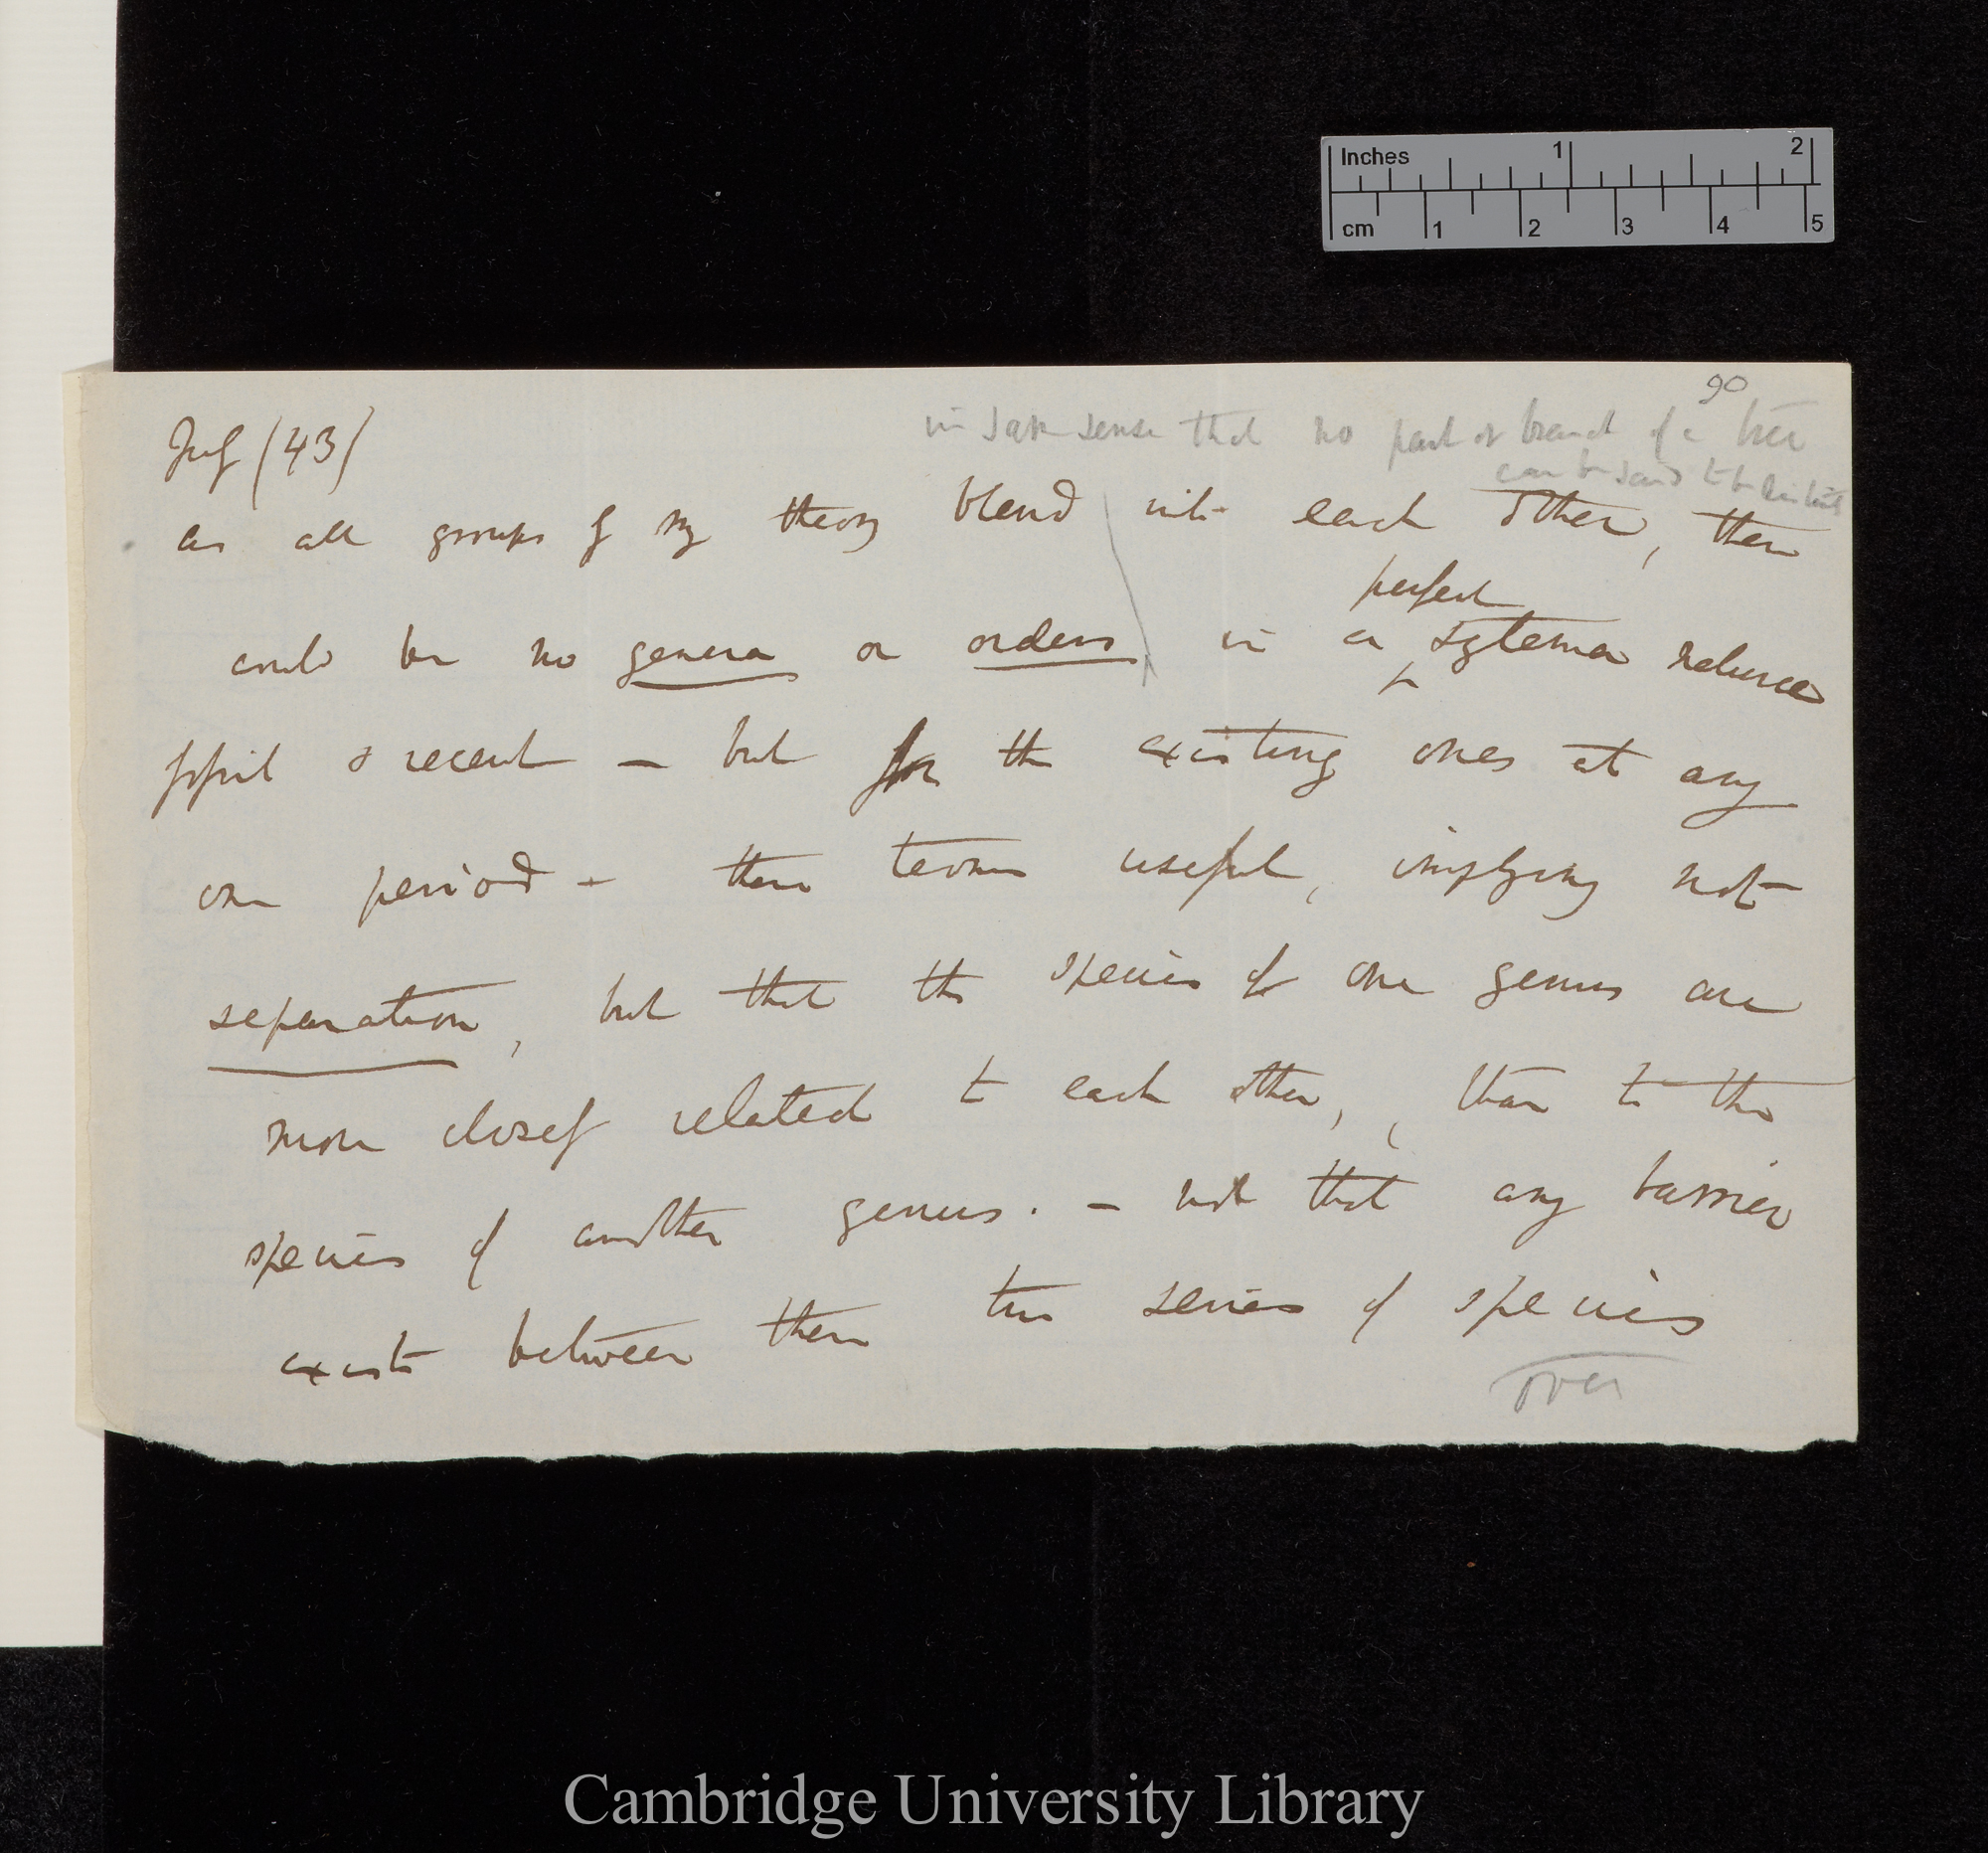 Inches 1 2
cm 1 2 3 4 5
90
July /43/
in same sense that no part or branch of a tree
can be said to be distinct
as all groups by my theory blend into each other, there
could be no genera or orders in a perfect systema naturæ
fossil & recent — but for the existing ones at any
one period — these terms useful, implying not
separation, but that the species of one genus are
more closely related to each other, than to the
species of another genus. — not that any barrier
exists between these two series of species
over
Cambridge University Library